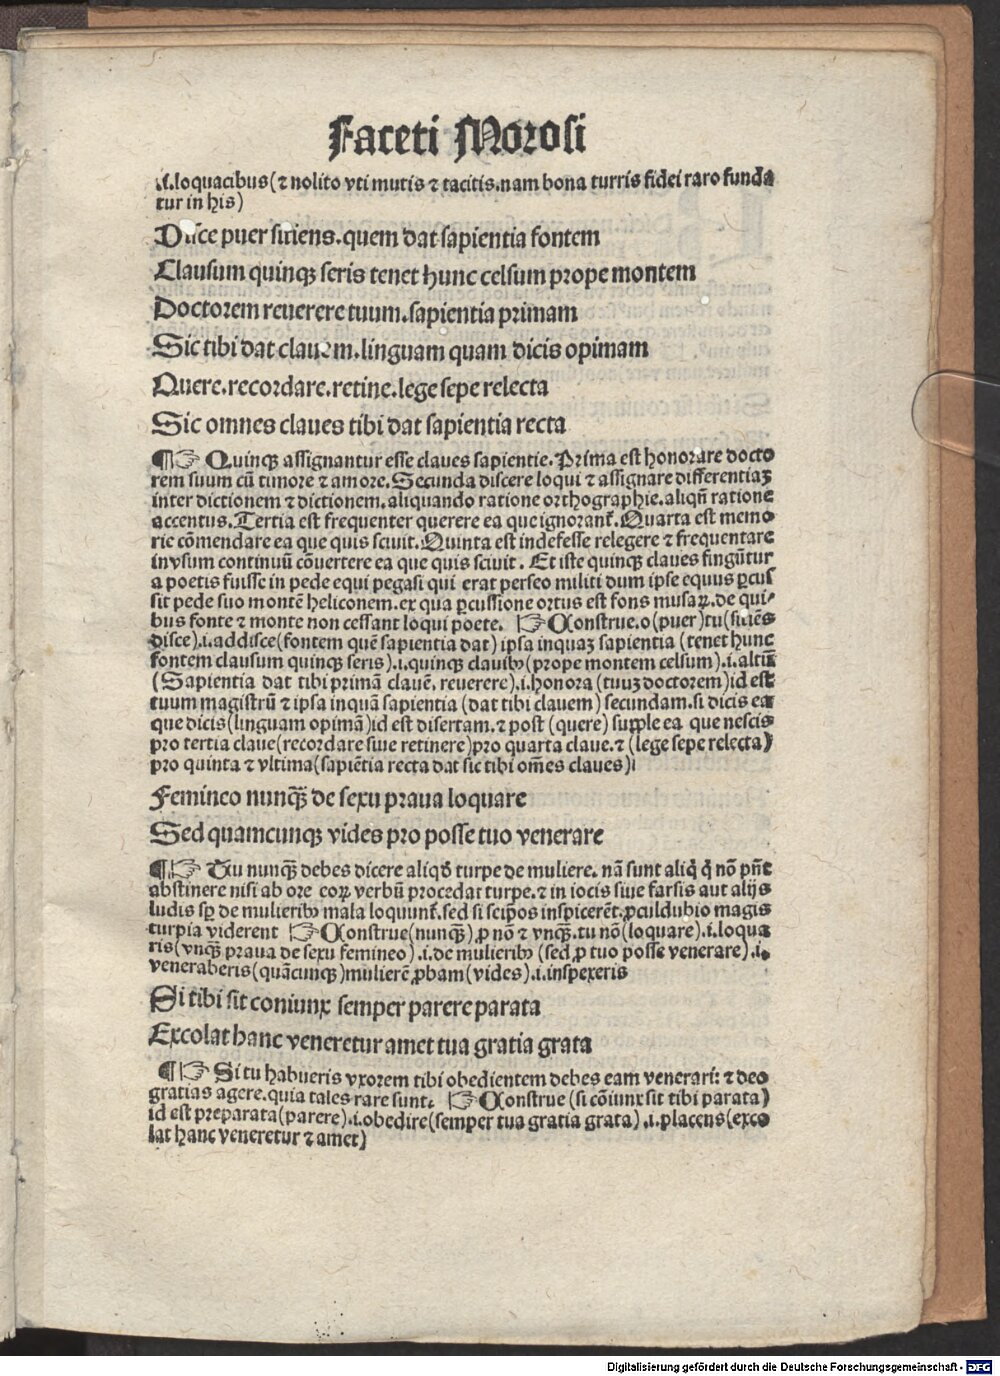 Faceti Morosi
.i.loquacibus(⁊ nolito vti mutis ⁊ tacitis.nam bona turris fidei raro funda
tur in his)
Disce puer sitiens.quem dat sapientia fontem
Clausum quinqꝫ seris tenet hunc celsum prope montem
Doctorem reuerere tuum.sapientia primam
Sic tibi dat clauem.linguam quam dicis opimam
Quere.recordare.retine.lege sepe relecta
Sic omnes claues tibi dat sapientia recta
¶☞ Quinqꝫ assignantur esse claues sapientie.Prima est honorare docto
rem suum cū timore ⁊ amore.Secunda discere loqui ⁊ assignare differentiaꝫ
inter dictionem ⁊ dictionem.aliquando ratione orthographie.aliqñ ratione
accentus.Tertia est frequenter querere ea que ignorant̃.Quarta est memo
rie cōmendare ea que quis sciuit.Quinta est indefesse relegere ⁊ frequentare
invsum continuū cōuertere ea que quis sciuit. Et iste quinqꝫ claues fingūtur
a poetis fuisse in pede equi pegasi qui erat perseo militi dum ipse equus ꝑcus
sit pede suo montē heliconem.ex qua ꝑcussione ortus est fons musaꝝ.de qui⸗
bus fonte ⁊ monte non cessant loqui poete. ☞Construe.o(puer)tu(sitiēs
disce).i.addisce(fontem quē sapientia dat) ipsa inquaꝫ sapientia (tenet hunc
fontem clausum quinqꝫ seris).i.quinqꝫ clauibꝰ(prope montem celsum).i.altū
(Sapientia dat tibi primā clauē, reuerere).i.honora (tuuꝫ doctorem)id est
tuum magistrū ⁊ ipsa inquā sapientia (dat tibi clauem) secundam.si dicis ea
que dicis(linguam opimā)id est disertam.⁊ post (quere) supple ea que nescis
pro tertia claue(recordare siue retinere)pro quarta claue.⁊ (lege sepe relecta)
pro quinta ⁊ vltima(sapiētia recta dat sic tibi om̄es claues)
Femineo nunqꝫ̄ de sexu praua loquare
Sed quamcunqꝫ vides pro posse tuo venerare
¶☞ Tu nunqꝫ̄ debes dicere aliqd̄ turpe de muliere. nā sunt aliq̇ q̇ nō pn̄t
abstinere nisi ab ore coꝝ verbū procedat turpe.⁊ in iocis siue farsis aut alijs
ludis sꝑ de mulieribꝰ mala loquunt̃.sed si seip̄os inspicerēt.ꝓculdubio magis
turpia viderent ☞Construe(nunqꝫ̄).ꝓ nō ⁊ vnqꝫ̄.tu nō(loquare).i.loqua
ris(vnqꝫ̄ praua de sexu femineo).i.de mulieribꝰ (sed ꝓ tuo posse venerare).i.
veneraberis(quācunqꝫ)mulierē ꝓbam(vides).i.inspexeris
Si tibi sit coniunx semper parere parata
Excolat hanc veneretur amet tua gratia grata
¶☞ Si tu habueris vxorem tibi obedientem debes eam venerari: ⁊ deo
gratias agere.quia tales rare sunt. ☞Construe (si cōiunx sit tibi parata)
id est preparata(parere).i.obedire(semper tua gratia grata).i.placens(exco
lat hanc veneretur ⁊ amet)
Digitalisierung gefördert durch die Deutsche Forschungsgemeinschaft - DFG